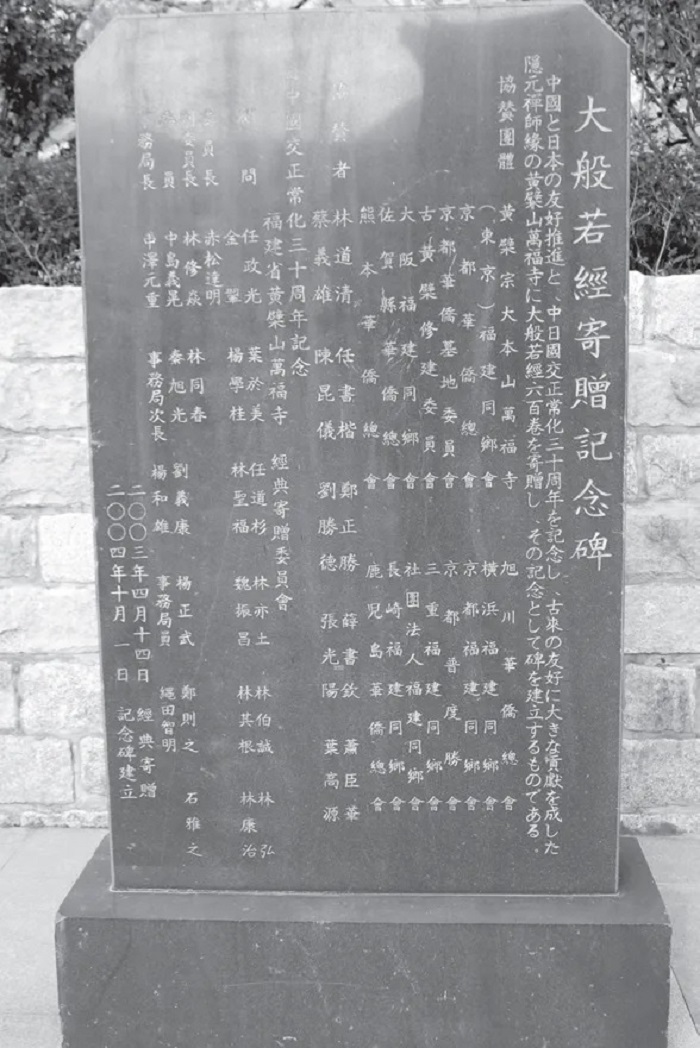 大般若經寄贈記念碑
中國と日本の友好推進と、中日國交正常化三十周年を記念し、古來の友好に大きな貢獻を成した
隱元禪師緣の黃檗山萬福寺に大般若經六百卷を寄贈し、その記念として碑を建立するものである。
協贊團體
黃檗宗大本山萬福寺 旭川華僑總會
(東京)福建同鄉會 橫浜福建同鄉會
京都華僑總會 京都福建同鄉會
京都華僑墓地委員會 京都普度勝會
古黃檗修建委員會 三重福建同鄉會
大阪福建同鄉會 社團法人福建同鄉會
佐賀縣華僑總會 長崎福建同鄉會
熊本華僑總會 鹿児島華僑總會
發者 林道清 任書楷 鄭正勝 薛書欽 蕭臣華
蔡義雄 陳昆儀 劉勝德 張光陽 葉高源
中國交正常化三十周年記念
福建省黃檗山萬福寺 經典寄贈委員會
問 任政光 葉於美 任道杉 林亦土 林伯誠 林弘
金 楊學桂 林聖福 魏振昌 林其根 林康治
員長 赤松達明
委員長 林修焱 林同春
員 中島義晃 秦旭光 劉義康 楊正武 鄭則之 石雅之
務局長 串澤元重 事務局次長 楊和雄 事務局員 繩田智明
二〇〇三年四月十四日 經典寄贈
二〇〇四年十月一日 記念碑建立